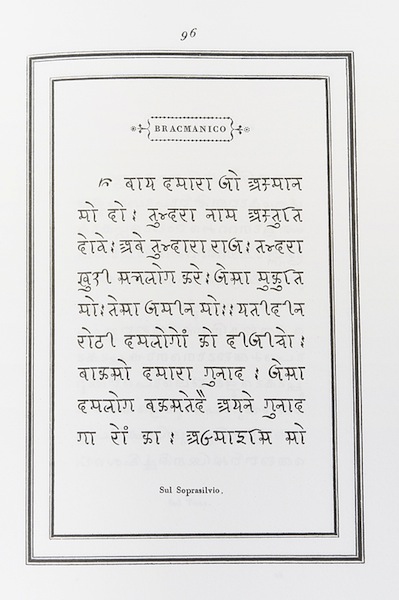 96
BRACMANICO
बाप हमारा जो अस्मान
मो हो: तुन्हरा नाम अस्तुति
होवे: अवे तुन्हारा राज: तन्हरा
खुशी सभलोग करे: जेसा मुकुति
मो: तेसा जमीन मो:: यतीदीन
रोटी हमलोगों को दीजीवो:
बाकसो हमारा गुनाह : जेसा
हमलोग बकसतेहै अपने गुनाह
गा रों का : अजमाइसि मो
Sul Soprasilvio.